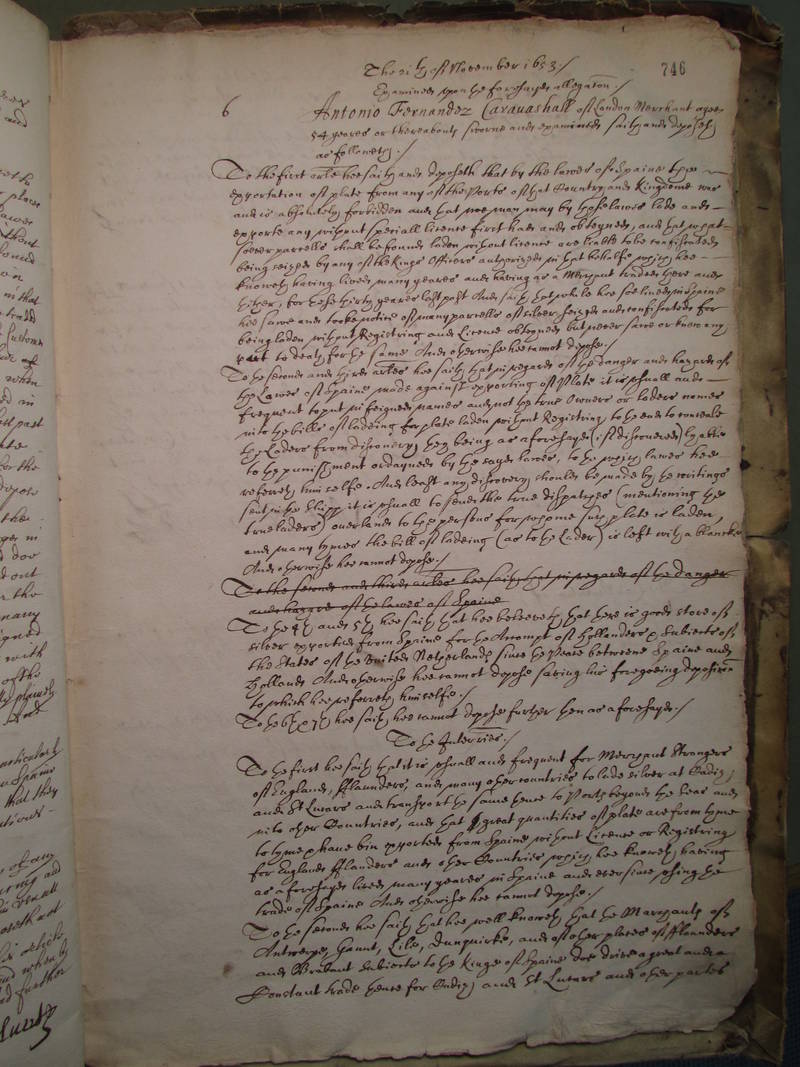 The 21th of November 1653./
746
Examined upon the foresayd allegaton./
6
Antonio Fernandez Caravashall of London Merchant aged
54 yeares or thereabouts sworne and examined saith and deposeth
as followeth./
To the first arle hee saith and deposeth that by the lawes of Spaine the
exportation of plate from any of the Ports of that Country and Kingdome was
and is absolutely forbidden and that noe man may by those lawes lade and
exporte any without speciall licence first had and obteyned, and that what
soever parcells shall be found laden without licence are liable to be confiscated
being seized by any of the Kings Officers authorized in that behalfe which hee
knoweth having lived many yeares and having as a Merchant traded there and
thither, for these thirty yeares last past And saith that while hee soe lived in Spaine
hee sawe and tooke notice of many parcells of silver seized and confiscated for
being laden without Registring and Licence obteyned but never sawe or knew any
put to death for the same And otherwise hee cannot depose./
To the second and third arles hee saith that in regard of the danger and hazard of
the Lawes of Spaine made against exporting of Plate it is usuall and
frequent to put in feigned names and not the true Owners or laders names
into the bills of ladeing for plate laden without Registring, to the end to conceale
the Laders from discovery they being as aforesayd (if discovered) lyable
to the punishment ordayned by the sayd lawes, to the which lawes hee
referreth himselfe. And least any discovery should be made by the writings
sent in the Shipp it is usuall to send the true dispatches (mentioning the
true laders) overland to the persons for whome such plate is laden,
and many tymes the bill of ladeing (as to the Lader) is left with a blancke
And otherwise hee cannot depose./
To the second and third arles hee saith that in regard of the danger
and hazard of the lawes of Spaine
To the 4th and 5th hee saith that hee beleeveth that there is good store of
silver exported from Spaine for the Accompt of Hollanders & Subiects of
the States of the United Netherlands since the Peace betweene Spaine and
Holland And otherwise hee cannot depose saving his foregoeing deposicon
to which hee referreth himselfe./
To the 6th & 7th hee saith hee cannot depose further then as aforesayd./
To the Interries./
To the first hee saith that it is usuall and frequent for Merchant Strangers
of England, Flaunders, and many other countries to lade silver at Cadiz,
and St Lucars and transport the same thence to Ports beyond the Seas and
into other Countries, and that great quantities of plate are from tyme
to tyme & have bin exported from Spaine without Licence or Registring
for England Flanders and other Countries which hee knoweth having
as aforesayd lived many yeares in Spaine and ever since using the
trade of Spaine And otherwise hee cannot depose./
To the second hee saith that hee well knoweth that the Marchants of
Antwerpe, Gaunt, Lile, Dunquirke, and of other places of Flaunders
and Brabant Subiects to the Kinge of Spaine doe drive a great and a
Constant trade thence for Cadiz, and St Lucars and other partes